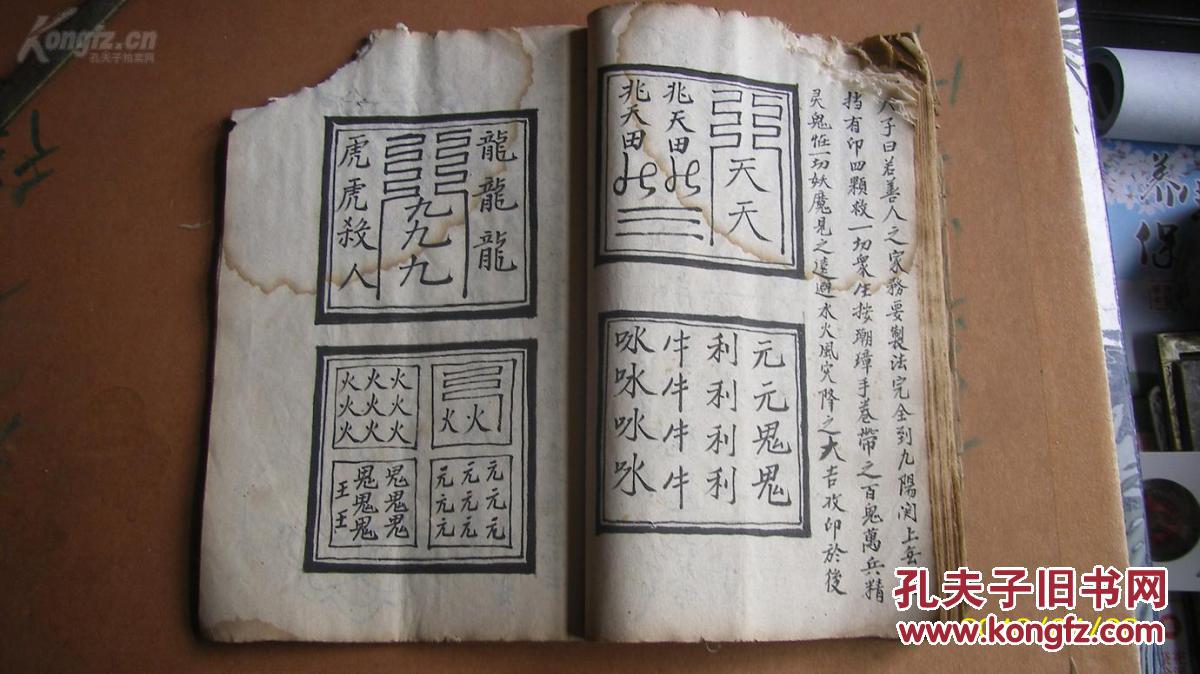 子曰若善人之家務要製法完全到九陽関上
有印四顆救一切衆生按瑚璋手卷帶之百鬼萬兵精
灵鬼怪一切妖魔見之遠避水火風灾降之大吉故印於後
天天
兆天田
兆天田
元元鬼鬼
利利利利
牛牛牛牛
咏咏咏咏
龍龍龍
九九九
虎虎殺人
火火
火火火
火火火
火火火
元元元
元元元
元元元
鬼鬼鬼
鬼鬼鬼
王王
养
保
Kongfz.cn
孔夫子拍卖网
孔夫子旧书网
www.kongfz.com